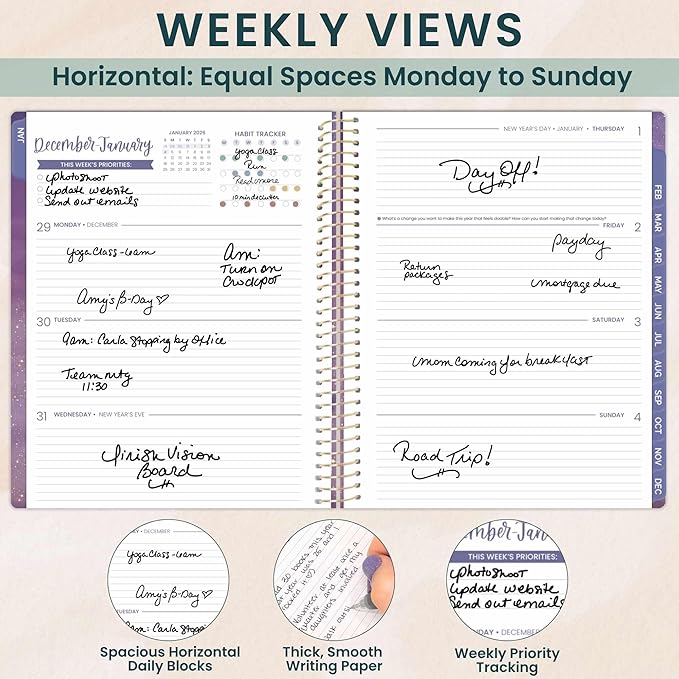 WEEKLY VIEWS
Horizontal: Equal Spaces Monday to Sunday
JAN
December-January
THIS WEEK'S PRIORITIES:
photoshoot
update website
Send out emails
JANUARY 2026
HABIT TRACKER
M T W T F S S
Yoga Class
Run
Read more
10 min declutter
29 MONDAY • DECEMBER
Yoga Class - 6am
Am:
Turn on
Crockpot
Amy's B-Day ♡
30 TUESDAY
9am: Carla stopping by office
Team mtg
11:30
31 WEDNESDAY • NEW YEAR'S EVE
finish Vision
Board
NEW YEAR'S DAY • JANUARY • THURSDAY 1
Day Off!
What's a change you want to make this year that feels doable? How can you start making that change today?
FRIDAY 2
payday
Return
packages
mortgage due
SATURDAY 3
mom coming for breakfast
SUNDAY 4
Road Trip!
FEB
MAR
APR
MAY
JUN
JUL
AUG
SEP
OCT
NOV
DEC
DECEMBER
Yoga Class - 6am
Amy's B-Day ♡
TUESDAY
am: Carla stoppi
Spacious Horizontal
Daily Blocks
30 books this year
year was 25 and I
Volunteer at least once a
quarter and get my
daughters involved
Thick, Smooth
Writing Paper
mber-Jan
THIS WEEK'S PRIORITIES:
photoshoot
update website
Send out emails
DAY • DECEMBE
Weekly Priority
Tracking